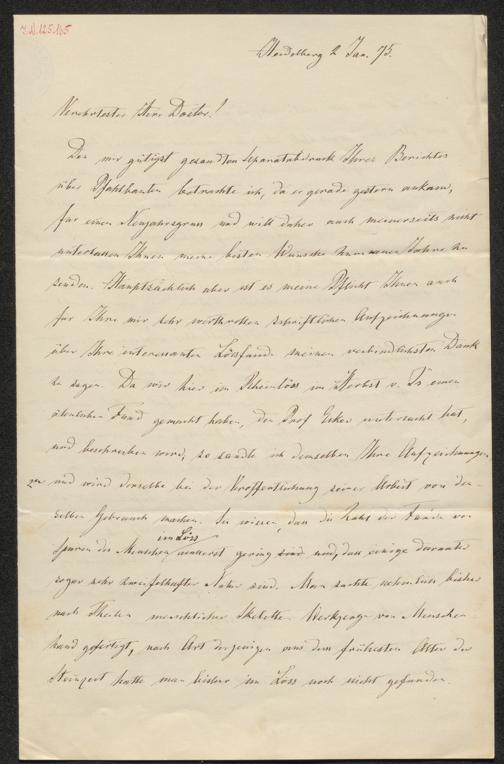 I.N. 125.165
Heidelberg 2 Jan. 75.
Verehrtester Herr Doctor!
Den mir gütigst gesandten Separatabdruck Ihres Berichtes
über Pfahlbauten betrachte ich, da er gerade gestern ankam,
für einen Neujahrsgruss und will daher auch meinerseits nicht
unterlassen Ihnen meine besten Wünsche zum neuen Jahre zu
senden. Hauptsächlich aber ist es meine Pflicht Ihnen auch
für Ihre mir sehr werthvollen schriftlichen Aufzeichnungen
über Ihre interessanten Lössfunde meinen verbindlichsten Dank
zu sagen. Da wir hier im Rheinlöss im Herbst v. Js einen
ähnlichen Fund gemacht haben, den Prof Ecker untersucht hat,
und beschreiben wird, so sandte ich demselben Ihre Aufzeichnungen
zu und wird derselbe bei der Veröffentlichung seiner Arbeit von den-
selben Gebrauch machen. Sie wissen, dass die Zahl der Funde von
im Löss
Spuren des Menschen äusserst gering sind und, dass einige darunter
sogar sehr zweifelhafter Natur sind. Man suchte bisher
nach Theilen menschlicher Skelette. Werkzeuge von Menschen
hand gefertigt, nach Art derjenigen aus dem frühesten Alter der
Steinzeit hatte man bisher im Löss noch nicht gefunden.